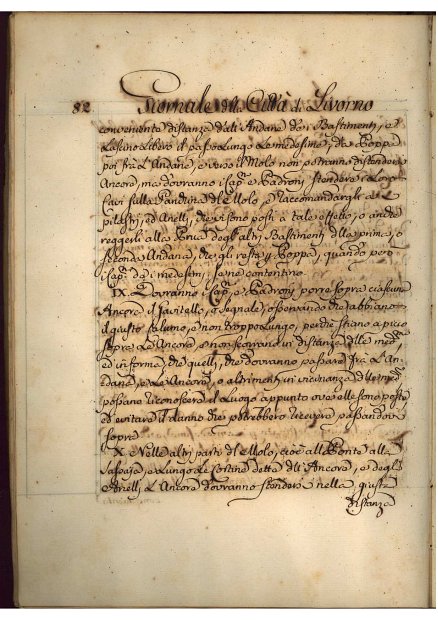 82 Giornale della Città di Livorno
conveniente distanza dall'Andane dei Bastimenti, e
Lascino libero il passo lungo le medesime; da Poppa
poi fra l'Andane, e verso il Molo non potranno distendere
Ancore, ma dovranno i Cap.ni e Padroni stendere i Loro
Cavi sulla Panchina del Molo, e raccomandargli ai
pilastri, ed Anelli, che vi sono posti a tale effetto, o andre
reggersi alla Prua degl'altri Bastimenti della prima, o
seconda Andana, che gli resta p Poppa, quando però
i Cap.ni dei medesimi se ne contentino.
IX. Dovranno i Cap.ni, e Padroni porre sopra ciascuna
Ancora il gavitello, o segnale, osservando che abbiano
il giusto calumo, e non troppo lungo, perche stiano a picco
sopra le Ancore, e non scorrano in distanza dalle med.e
ed in forma, che quelli, che dovranno passare fra l'An=
dana, e le Ancore, o altrimenti in vicinanza delle med.e
possano riconoscere il Luogo appunto ove elle sono poste
ed evitare il danno che potrebbero ricevere passandovi
sopra.
X. e Nelle altri parti del Molo, cioè alle Ponte alla
Sassaia, e Lungo le Cortine dette dell'Ancore, e degl'
Anelli, l'Ancore dovranno stendersi nella giusta
distanza